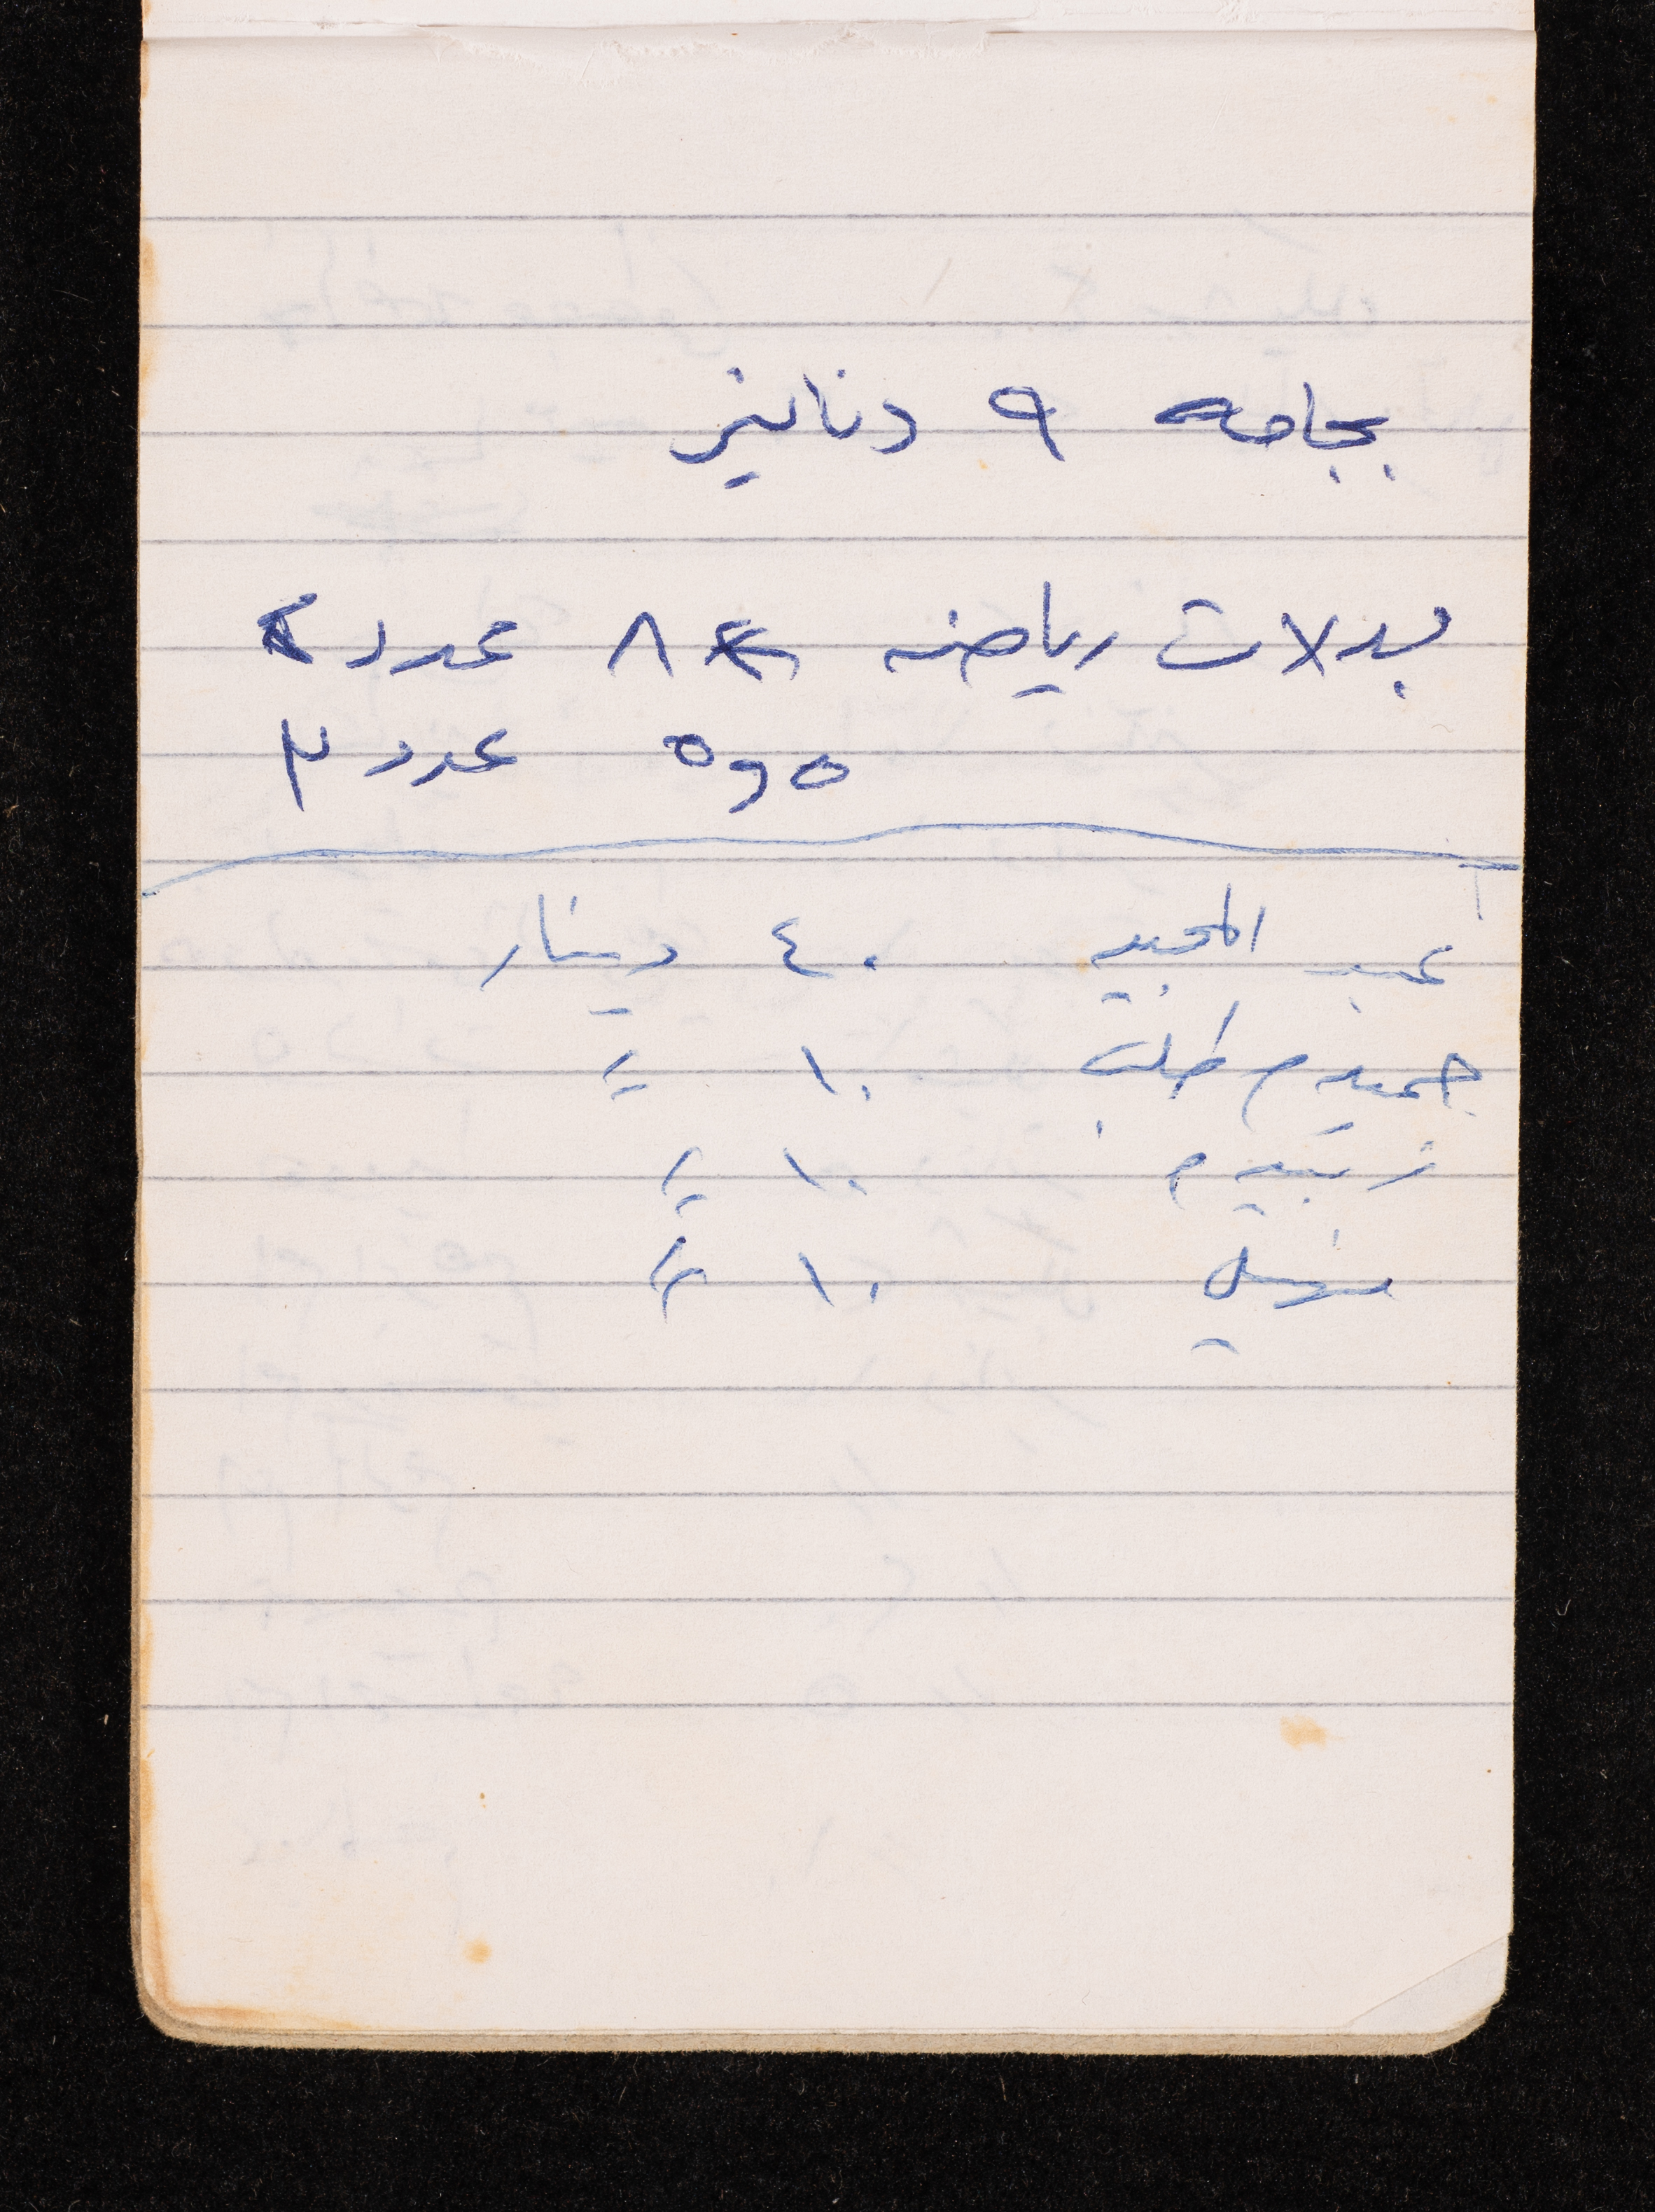 بجامه ٩ دنانير
بدلات رياضه ٨ عدد ٢
٥و٥ عدد ٣
عبد المجيد ٤٠ دينار
حميد م طلب ١٠ =
زبيد م ١٠ =
سهيل ١٠ =